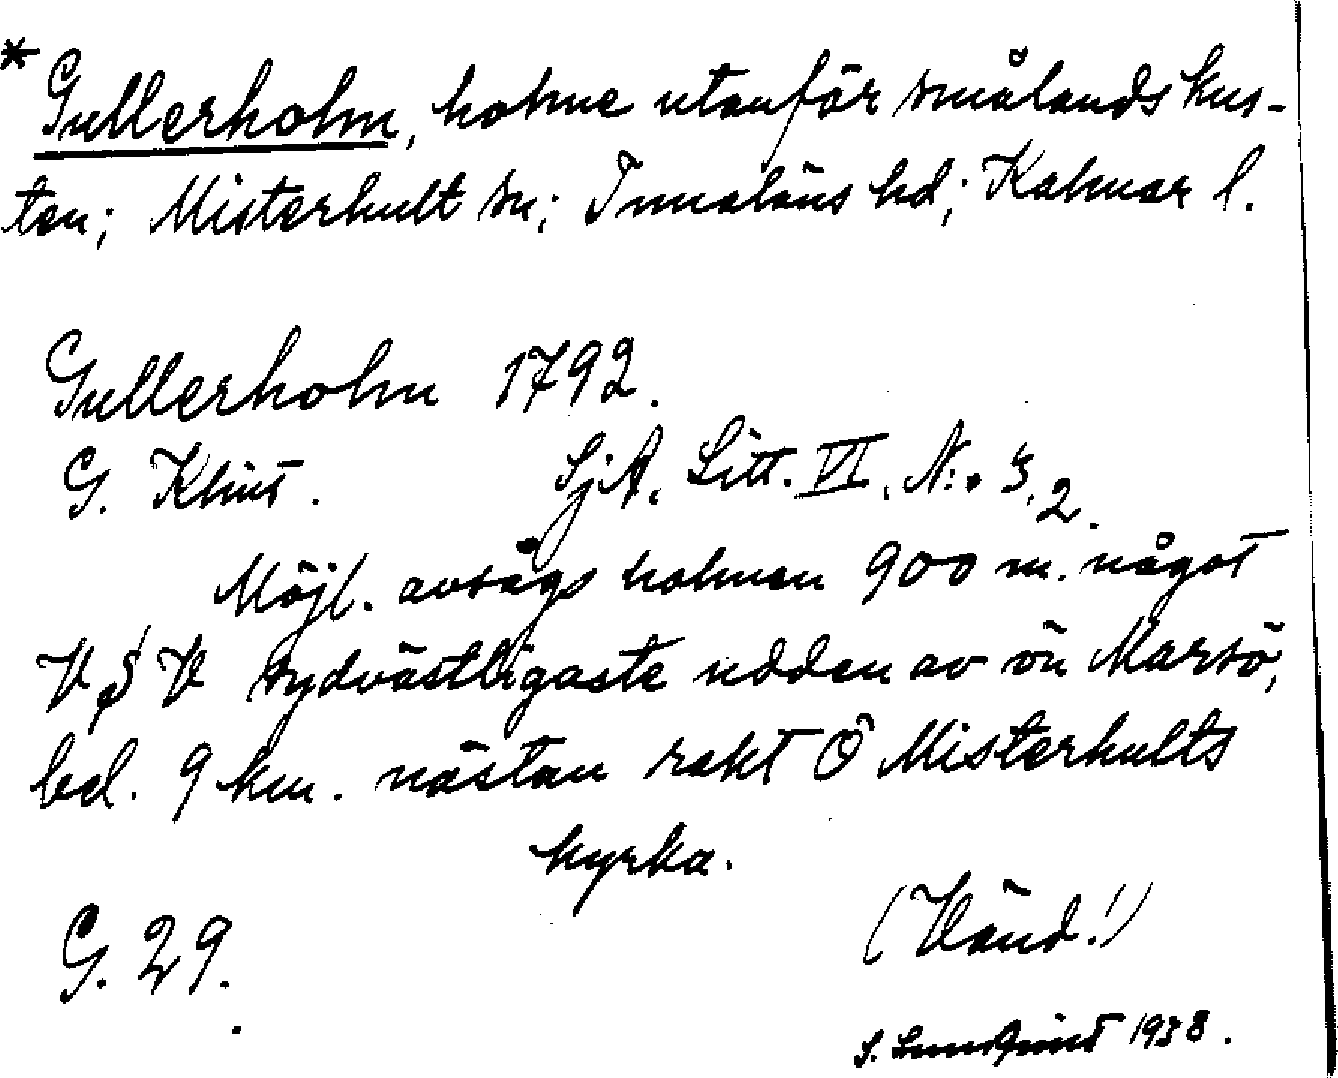 * Gullerholm, holme utanför smålandskus-
ten; Misterhult sn; Tunaläns hd; Kalmar l.
Gullerholm 1792.
G. Klint. SjA. Litt. VI. N:o 3,2.
Möjl. avsågs holmen 900 m. något
V S V sydvästligaste udden av ön Marsö,
bel. 9 km. nästan rakt Ö Misterhults
kyrka.
(Vänd!)
G. 29.
S. 1938.